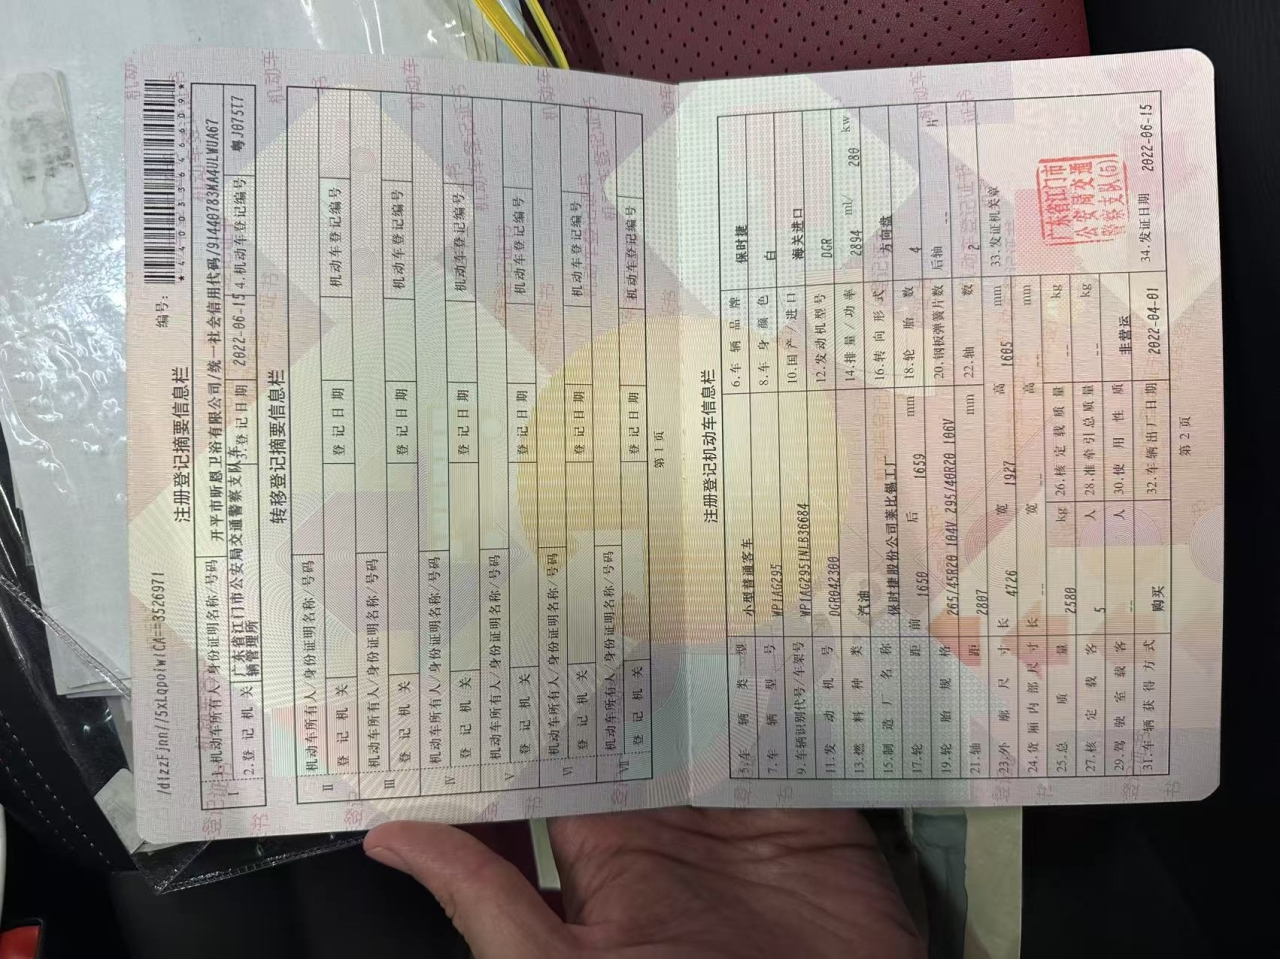 /dIzzFjnn//5xLqpoiwlCA==3526971
编号:
*440033646609*
注册登记摘要信息栏
Ⅰ
1.机动车所有人/身份证明名称/号码 开平市昕恳卫浴有限公司/统一社会信用代码/91440783MA4ULWUA67
2.登记机关 广东省江门市公安局交通警察支队车辆管理所 3.登记日期 2022-06-15 4.机动车登记编号 粤J075T7
转移登记摘要信息栏
Ⅱ
机动车所有人/身份证明名称/号码
登记机关 登记日期 机动车登记编号
Ⅲ
机动车所有人/身份证明名称/号码
登记机关 登记日期 机动车登记编号
Ⅳ
机动车所有人/身份证明名称/号码
登记机关 登记日期 机动车登记编号
Ⅴ
机动车所有人/身份证明名称/号码
登记机关 登记日期 机动车登记编号
Ⅵ
机动车所有人/身份证明名称/号码
登记机关 登记日期 机动车登记编号
Ⅶ
机动车所有人/身份证明名称/号码
登记机关 登记日期 机动车登记编号
第 1 页
注册登记机动车信息栏
5.车辆类型 小型普通客车 6.车辆品牌 保时捷
7.车辆型号 WP1AG295 8.车身颜色 白
9.车辆识别代号/车架号 WP1AG2951NLB36684 10.国产/进口 海关进口
11.发动机号 DGR042300 12.发动机型号 DGR
13.燃料种类 汽油 14.排量/功率 2894 ml/ 280 kw
15.制造厂名称 保时捷股份公司莱比锡工厂 16.转向形式 方向盘
17.轮距 前 1650 后 1659 mm 18.轮胎数 4
19.轮胎规格 265/45R20 104V 295/40R20 106V 20.钢板弹簧片数 后轴 -- 片
21.轴距 2807 mm 22.轴数 2
23.外廓尺寸 长 4726 宽 1927 高 1605 mm 33.发证机关章
24.货厢内部尺寸 长 -- 宽 -- 高 -- mm
25.总质量 2580 kg 26.核定载质量 -- kg
27.核定载客 5 人 28.准牵引总质量 -- kg
29.驾驶室载客 -- 人 30.使用性质 非营运
31.车辆获得方式 购买 32.车辆出厂日期 2022-04-01 34.发证日期 2022-06-15
广东省江门市
公安局交通
警察支队(5)
第 2 页